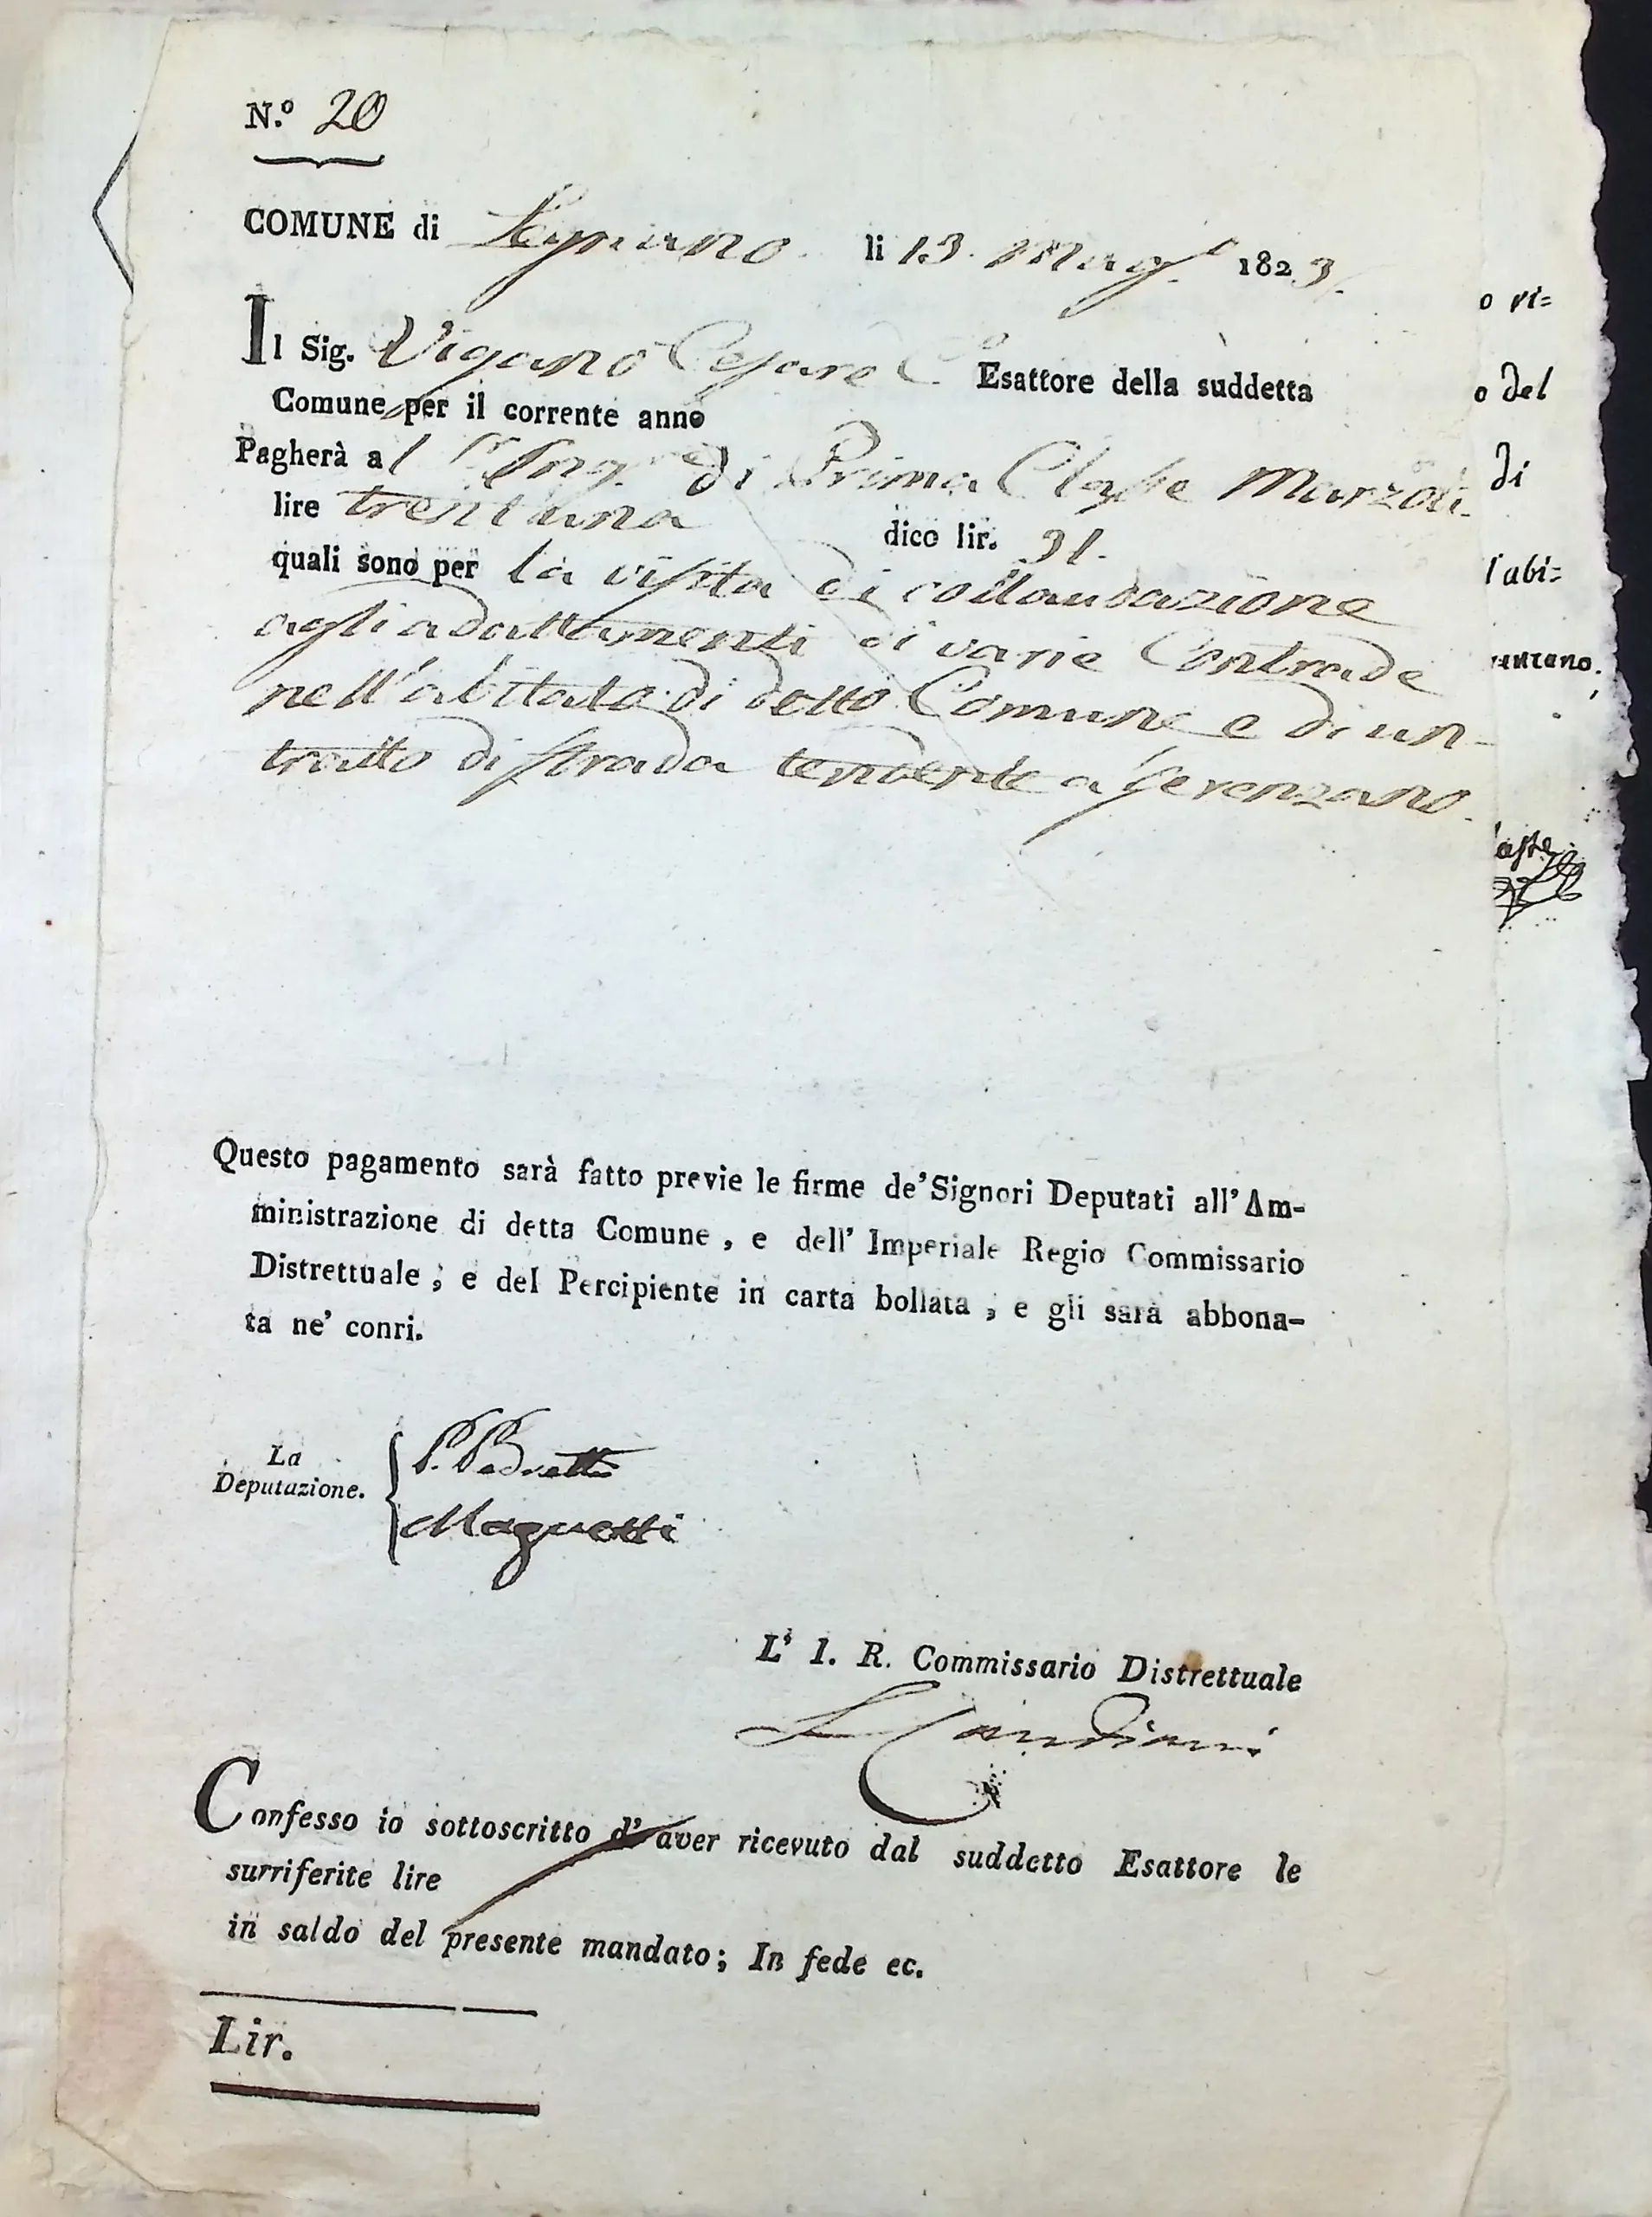 N.º 20
COMUNE di Legnano li 13. Magg.º 1823.
Il Sig. Viganò Cesare C.º Esattore della suddetta
Comune per il corrente anno
Pagherà al Sr. Ingre. di Prima Classe Marzoli
lire trentuna dico lir. 31.
quali sono per la visita di collaudazione
agli adattamenti di varie Contrade
nell'abitato di detto Comune e di un
tratto di strada tendente a Gerenzano.
Questo pagamento sarà fatto previe le firme de' Signori Deputati all' Am-
ministrazione di detta Comune, e dell' Imperiale Regio Commissario
Distrettuale; e del Percipiente in carta bollata, e gli sarà abbona-
ta ne' conri.
La
Deputazione.
P. Pedretti
Magnetti
L' I. R. Commissario Distrettuale
Candiani
Confesso io sottoscritto d' aver ricevuto dal suddetto Esattore le
surriferite lire
in saldo del presente mandato; In fede ec.
Lir.
o vi=
o del
di
l'abi=